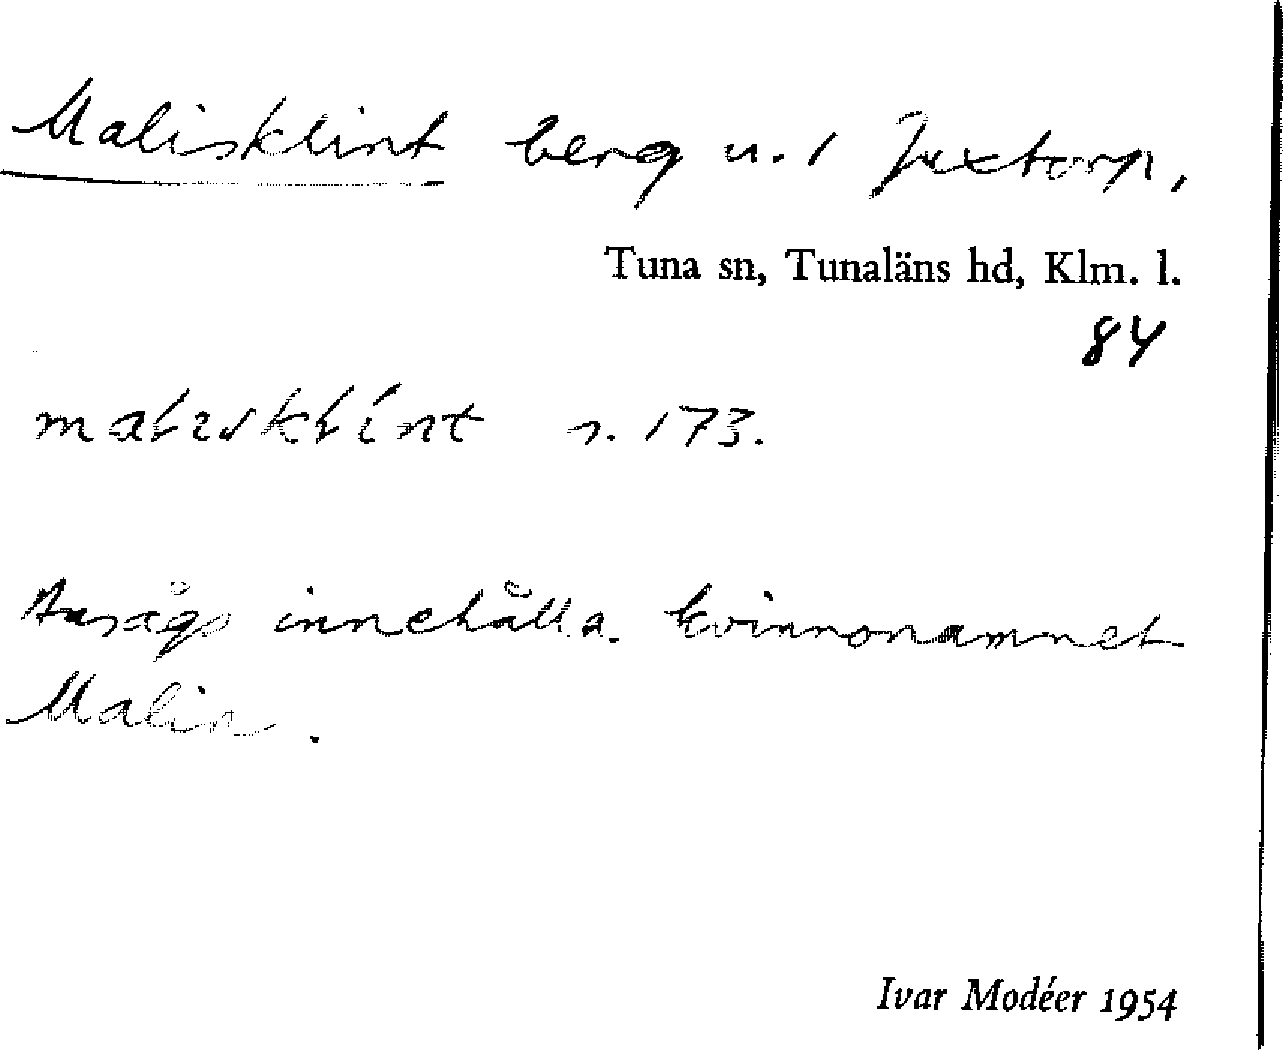 Malisklint berg u. 1 Juxtorp,
Tuna sn, Tunaläns hd, Klm. l.
84
malisklínt s. 173.
Ansågs innehålla kvinnonamnet
Malin.
Ivar Modéer 1954